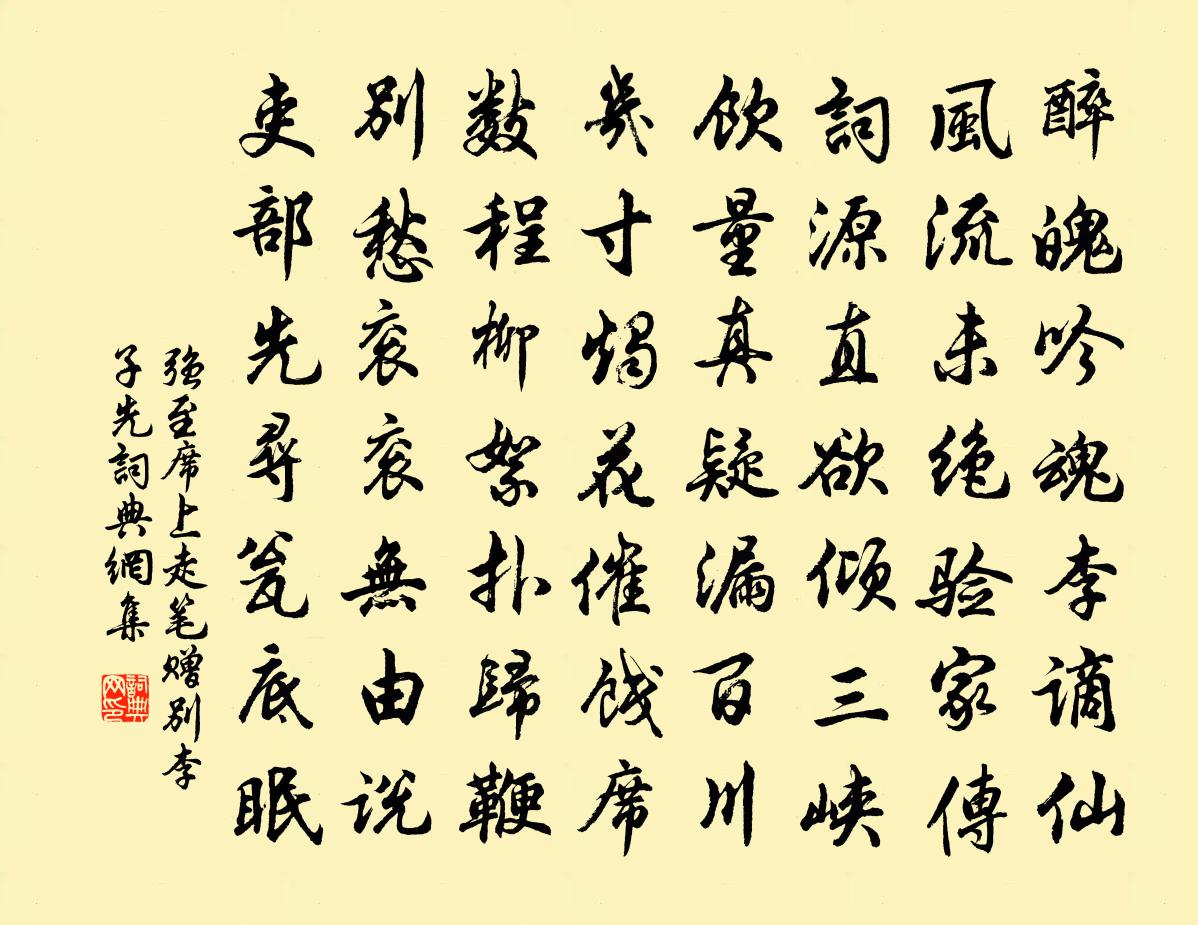 醉魄吟魂李謫仙
風流未絶验家傳
詞源直欲傾三峽
飲量真疑漏百川
幾寸燭花催餞席
數程柳絮扑歸鞭
別愁衮衮無由説
吏部先尋瓮底眠
強至席上走笔贈別李
子先詞典網集
詞典网印